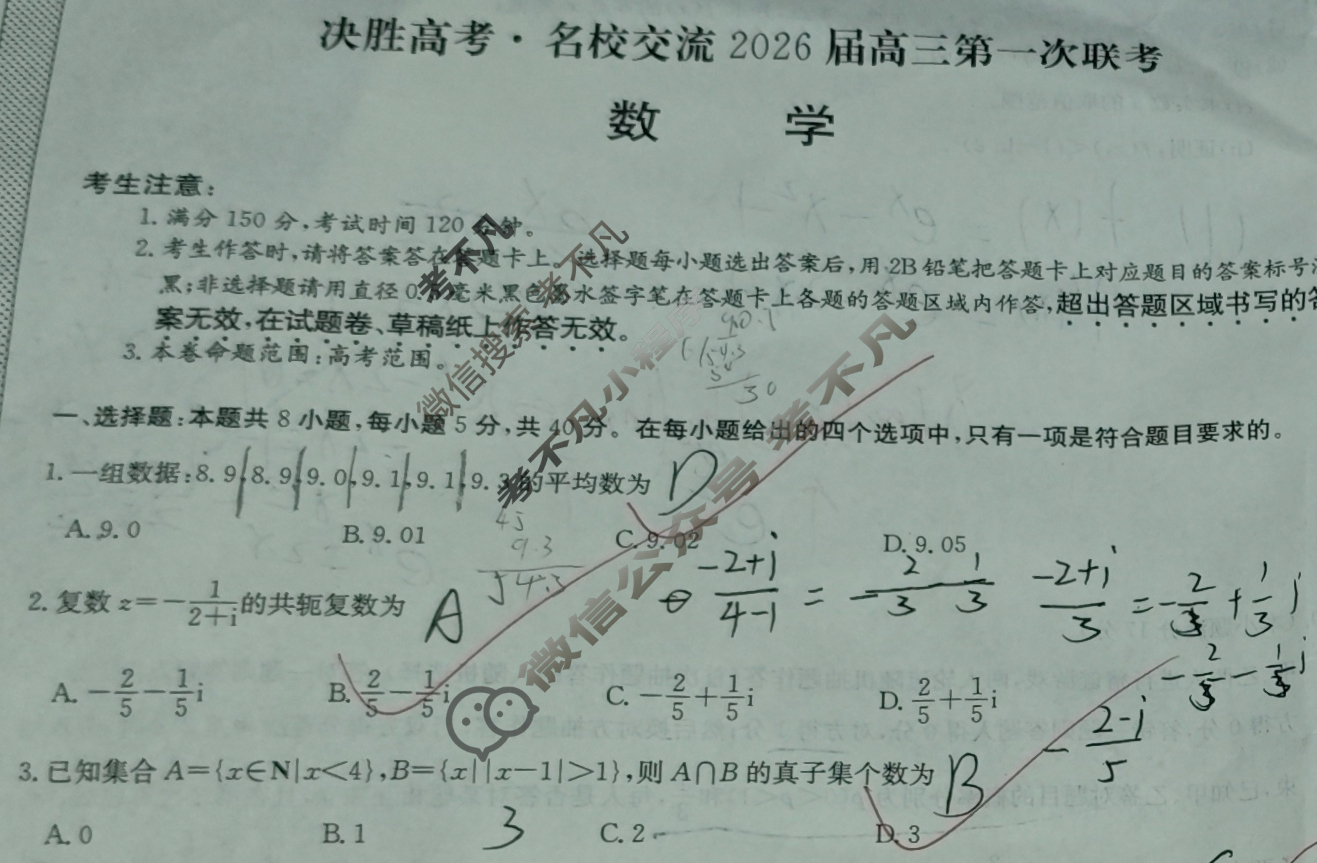 决胜高考·名校交流2026届高三第一次联考
数 学
考生注意:
1. 满分150分,考试时间120分钟。
2. 考生作答时,请将答案答在答题卡上。选择题每小题选出答案后,用2B铅笔把答题卡上对应题目的答案标号
黑;非选择题请用直径0.5毫米黑色墨水签字笔在答题卡上各题的答题区域内作答,超出答题区域书写的答
案无效,在试题卷、草稿纸上作答无效。
3. 本卷命题范围:高考范围。
90.7
6/54.3
54
30
一、选择题:本题共8小题,每小题5分,共40分。在每小题给出的四个选项中,只有一项是符合题目要求的。
1. 一组数据:8.9,8.9,9.0,9.1,9.1,9.3的平均数为 D
A. 9.0 B. 9.01 C. 9.02 D. 9.05
45
9.3
54.3
2. 复数z=-1/(2+i)的共轭复数为 A
(-2+i)/(4-1) = -2/3 1/3 (-2+i)/3 = -2/3+1/3 i
A. -2/5-1/5i B. 2/5-1/5i C. -2/5+1/5i D. 2/5+1/5i
-(2-i)/5
3. 已知集合A={x∈N|x<4},B={x||x-1|>1},则A∩B的真子集个数为 B
A. 0 B. 1 3 C. 2 D. 3
考不凡
微信搜索 考不凡
考不凡小程序
微信公众号 考不凡